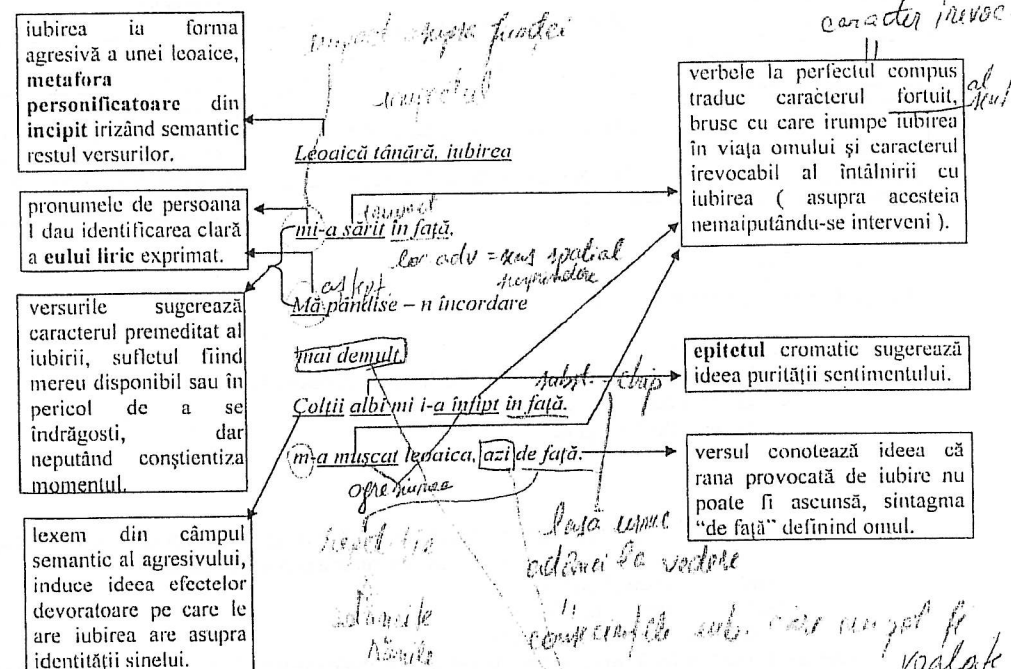 iubirea ia forma
agresivă a unei leoaice,
metafora
personificatoare din
incipit irizând semantic
restul versurilor.
pronumele de persoana
I dau identificarea clară
a eului liric exprimat.
versurile sugerează
caracterul premeditat al
iubirii, sufletul fiind
mereu disponibil sau în
pericol de a se
îndrăgosti, dar
neputând conştientiza
momentul.
lexem din câmpul
semantic al agresivului,
induce ideea efectelor
devoratoare pe care le
are iubirea are asupra
identităţii sinelui.
impact asupra funţei
Leoaică tânără, iubirea
mi-a sărit în faţă,
loc adv = sens spatial
Mă pândise – n încordare
mai demult.
subst. - chip
Colţii albi mi i-a înfipt în faţă.
m-a muşcat leoaica, azi de faţă.
lasă urme
adânci la vedere
adâncile
rănile
caracter irevoc
verbele la perfectul compus
traduc caracterul fortuit,
brusc cu care irumpe iubirea
în viaţa omului şi caracterul
irevocabil al întâlnirii cu
iubirea ( asupra acesteia
nemaiputându-se interveni ).
epitetul cromatic sugerează
ideea purităţii sentimentului.
versul conotează ideea că
rana provocată de iubire nu
poate fi ascunsă, sintagma
“de faţă” definind omul.